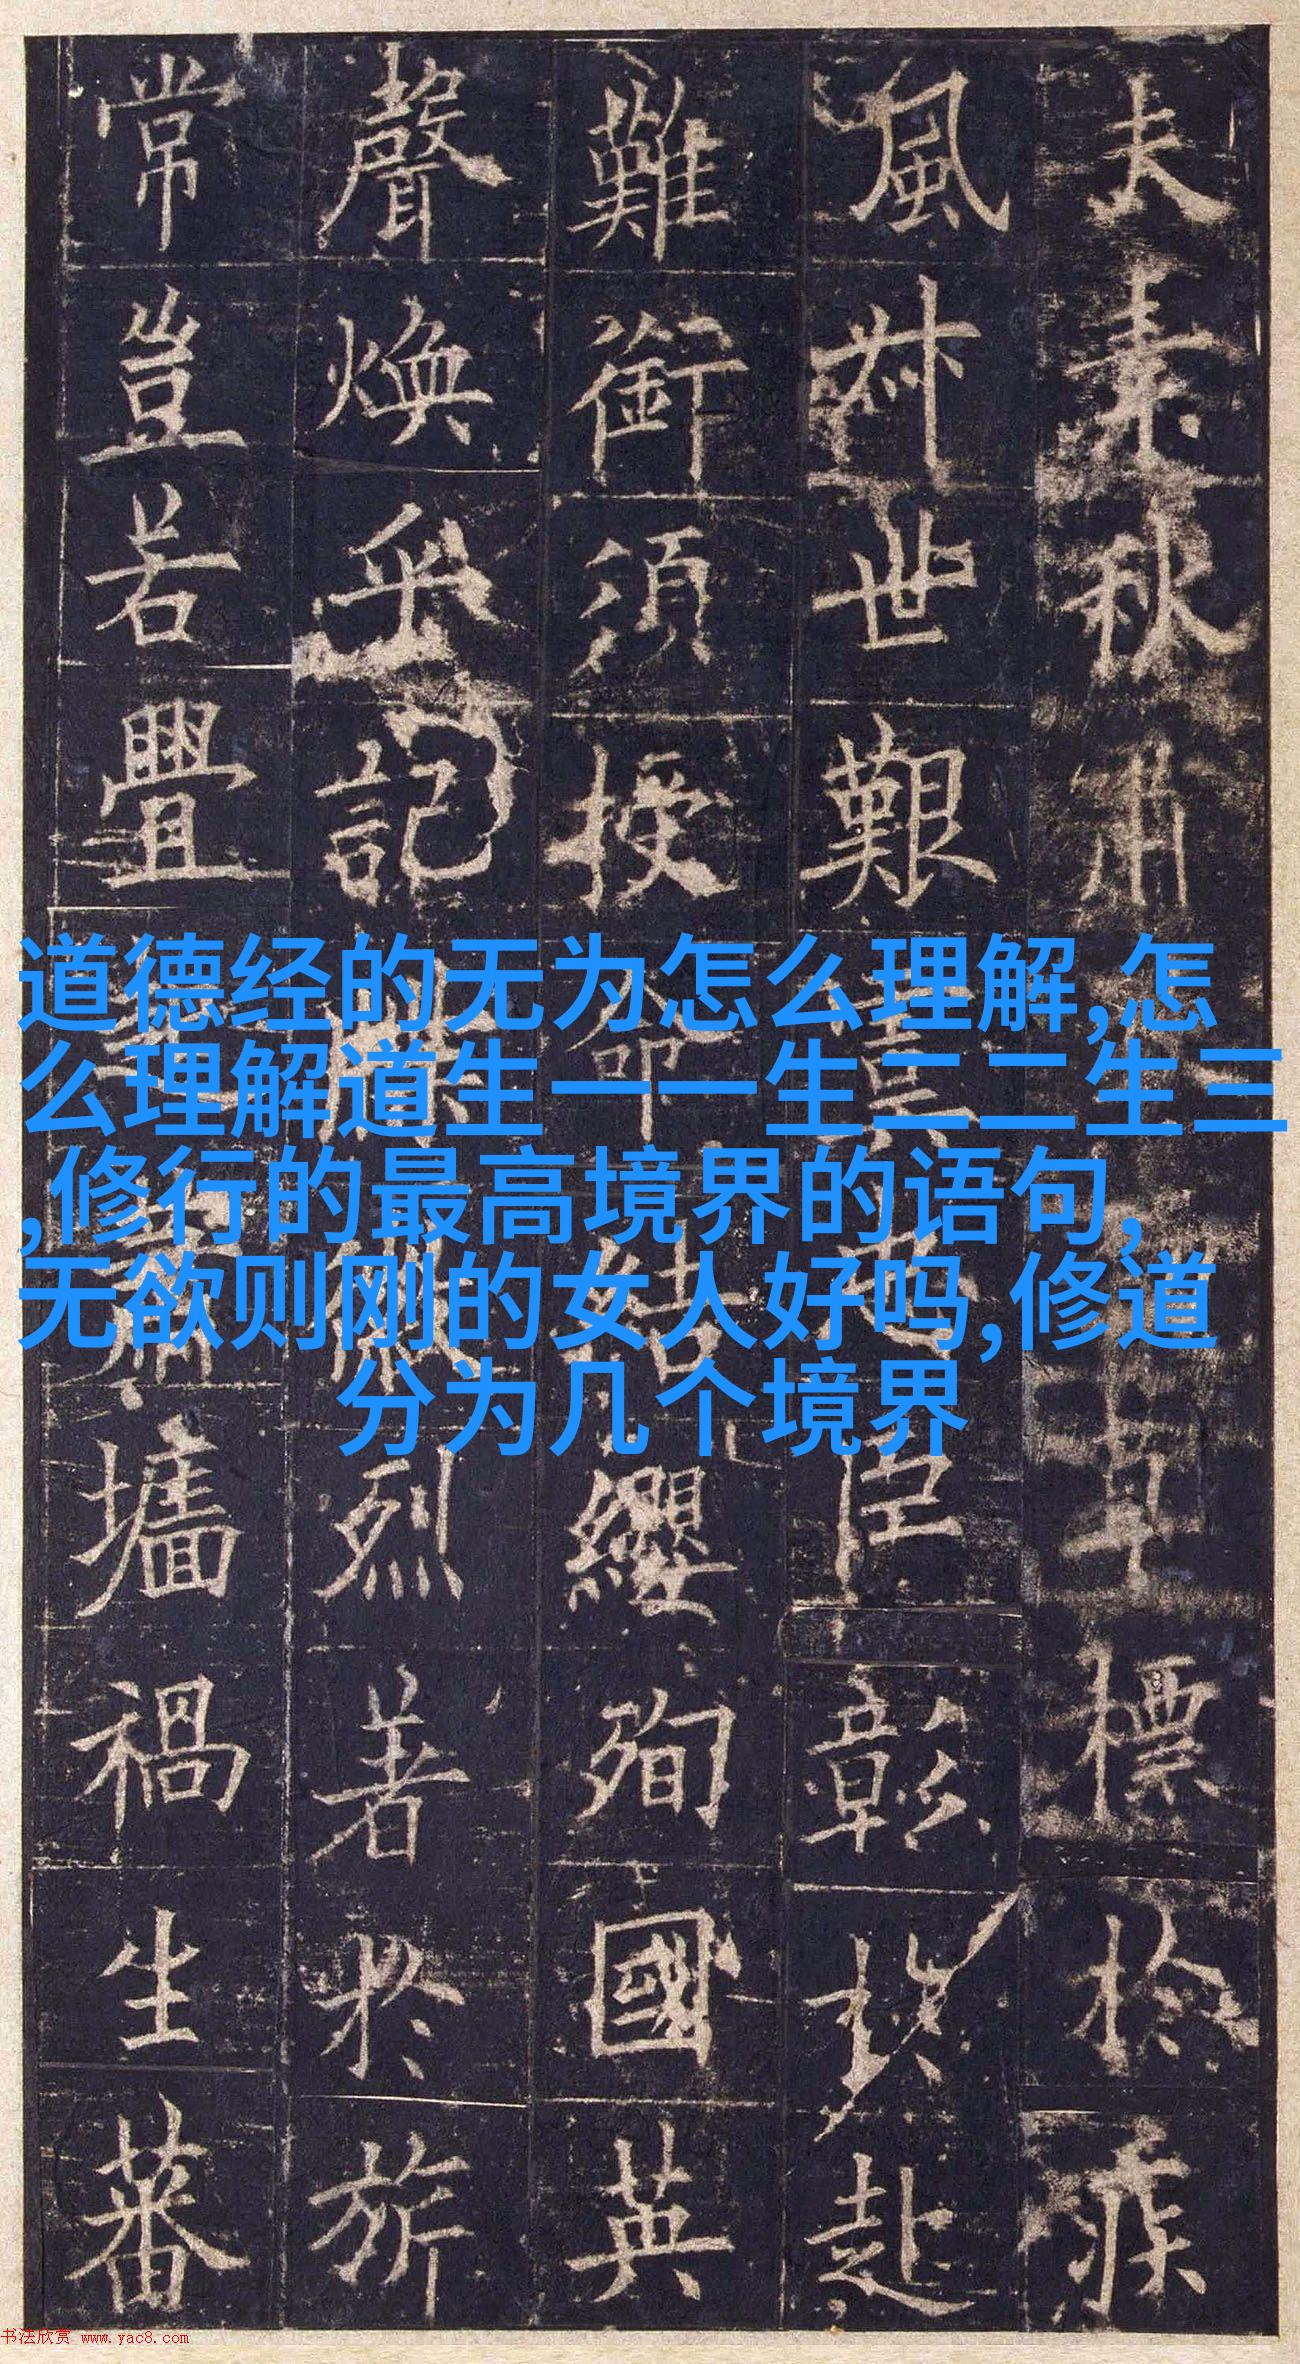 夫素秋肅
標於
風材世艱
臣彰
赴
難銜須授命
結纓殉國英
聲煥乎記
烈著於旂
常豈若釁
墻禍生蕃
道德经的无为怎么理解,怎
么理解道生一一生二二生三
,修行的最高境界的语句,
无欲则刚的女人好吗,修道
分为几个境界
书法欣赏 www.yac8.com